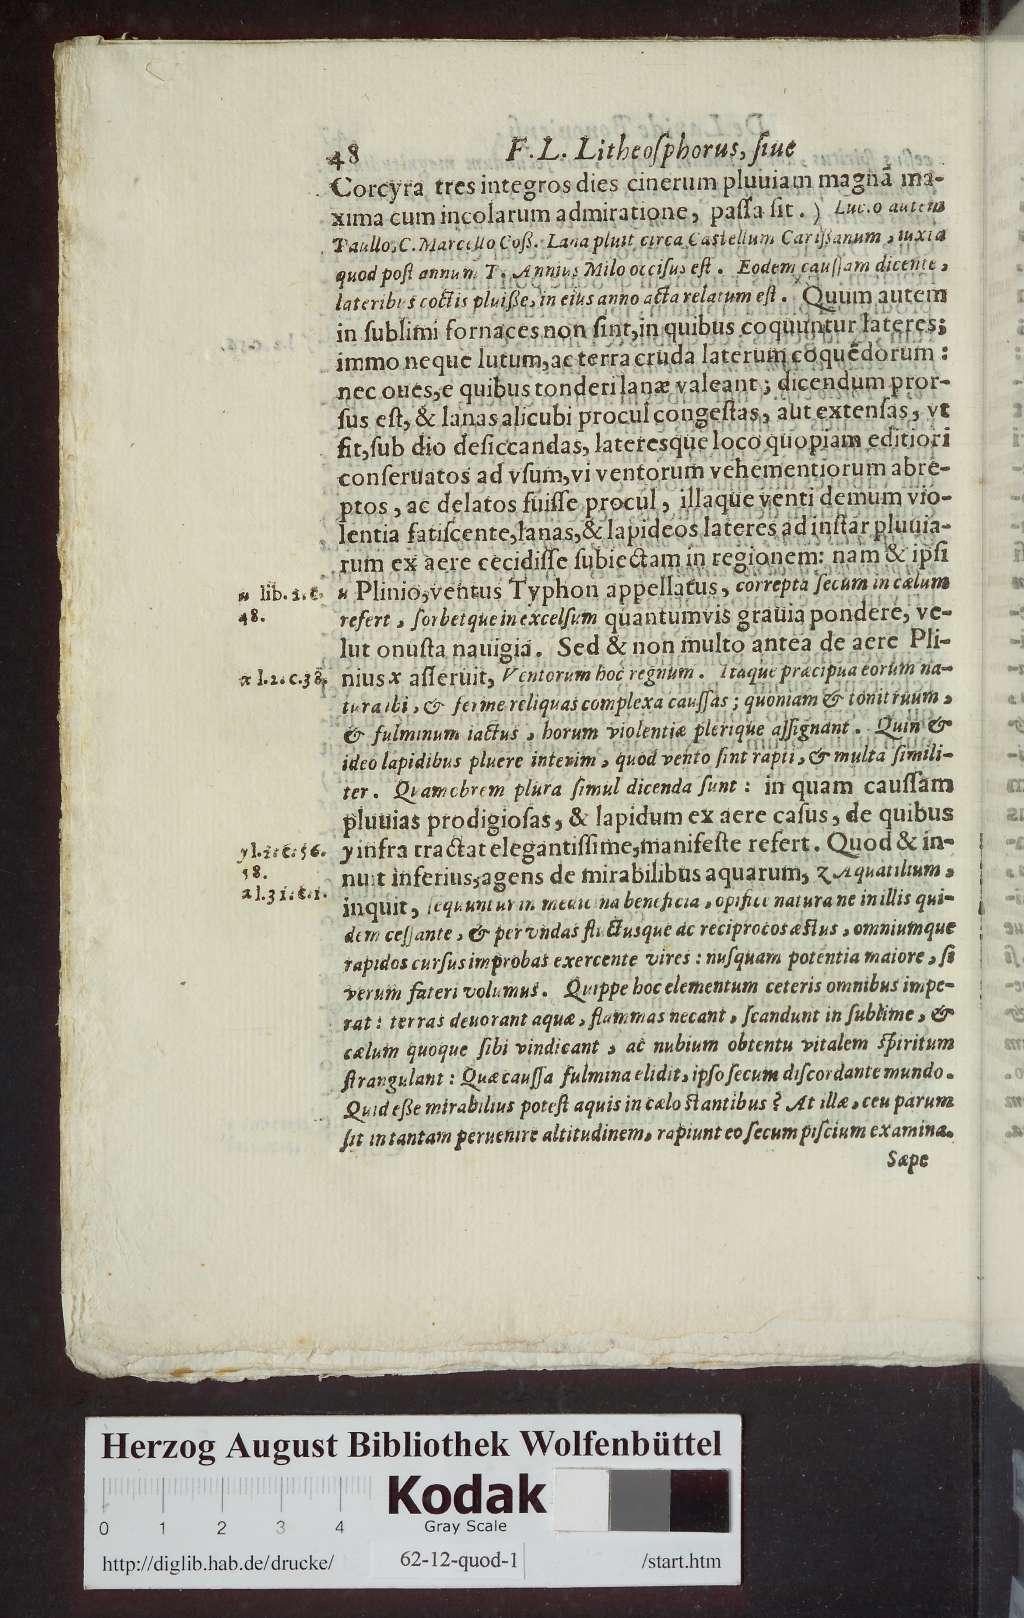 48 F. L. Litheoſphorus, ſiue
Corcyra tres integros dies cinerum pluuiam magnã ma-
xima cum incolarum admiratione, paſſa ſit. ) Lucio autem
Paullo, C. Marcello Coſſ. Lana pluit circa Caſtellum Cariſſanum, iuxta
quod poſt annum T. Annius Milo occiſus eſt. Eodem cauſſam dicente,
lateribus coctis pluiſſe, in eius anno acta relatum eſt. Quum autem
in ſublimi fornaces non ſint, in quibus coquuntur lateres;
immo neque lutum, ac terra cruda laterum coquẽdorum :
nec oues, e quibus tonderi lanæ valeant; dicendum pror-
ſus eſt, & lanas alicubi procul congeſtas, aut extenſas, vt
fit, ſub dio deſiccandas, lateresque loco quopiam editiori
conſeruatos ad vſum, vi ventorum vehementiorum abre-
ptos, ac delatos fuiſſe procul, illaque venti demum vio-
lentia fatiſcente, lanas, & lapideos lateres ad inſtar pluuia-
rum ex aere cecidiſſe ſubiectam in regionem: nam & ipſi
u lib. 2. c. 48.
u Plinio, ventus Typhon appellatus, correpta ſecum in cælum
refert, ſorbetque in excelſum quantumvis grauia pondere, ve-
lut onuſta nauigia. Sed & non multo antea de aere Pli-
x l. 2. c. 38.
nius x aſſeruit, Ventorum hoc regnum. Itaque præcipua eorum na-
tura ibi, & ferme reliquas complexa cauſſas; quoniam & tonitruum,
& fulminum iactus, horum violentiæ plerique aſſignant. Quin &
ideo lapidibus pluere interim, quod vento ſint rapti, & multa ſimili-
ter. Quamobrem plura ſimul dicenda ſunt : in quam cauſſam
pluuias prodigioſas, & lapidum ex aere caſus, de quibus
y l. 2. c. 56.
58.
y infra tractat elegantiſſime, manifeſte refert. Quod & in-
nuit inferius, agens de mirabilibus aquarum, z Aquatilium,
z l. 31. c. 1.
inquit, ſequuntur in medicina beneficia, opifice natura ne in illis qui-
dem ceſſante, & per vndas fluctusque ac reciprocos æſtus, omniumque
rapidos curſus improbas exercente vires : nuſquam potentia maiore, ſi
verum fateri volumus. Quippe hoc elementum ceteris omnibus impe-
rat : terras deuorant aquæ, flammas necant, ſcandunt in ſublime, &
cælum quoque ſibi vindicant, ac nubium obtentu vitalem ſpiritum
ſtrangulant : Quæ cauſſa fulmina elidit, ipſo ſecum diſcordante mundo.
Quid eſſe mirabilius poteſt aquis in cælo ſtantibus ? At illæ, ceu parum
ſit in tantam peruenire altitudinem, rapiunt eo ſecum piſcium examina.
Sæpe
Herzog August Bibliothek Wolfenbüttel
Kodak
0 1 2 3 4 Gray Scale
http://diglib.hab.de/drucke/ 62-12-quod-1 /start.htm